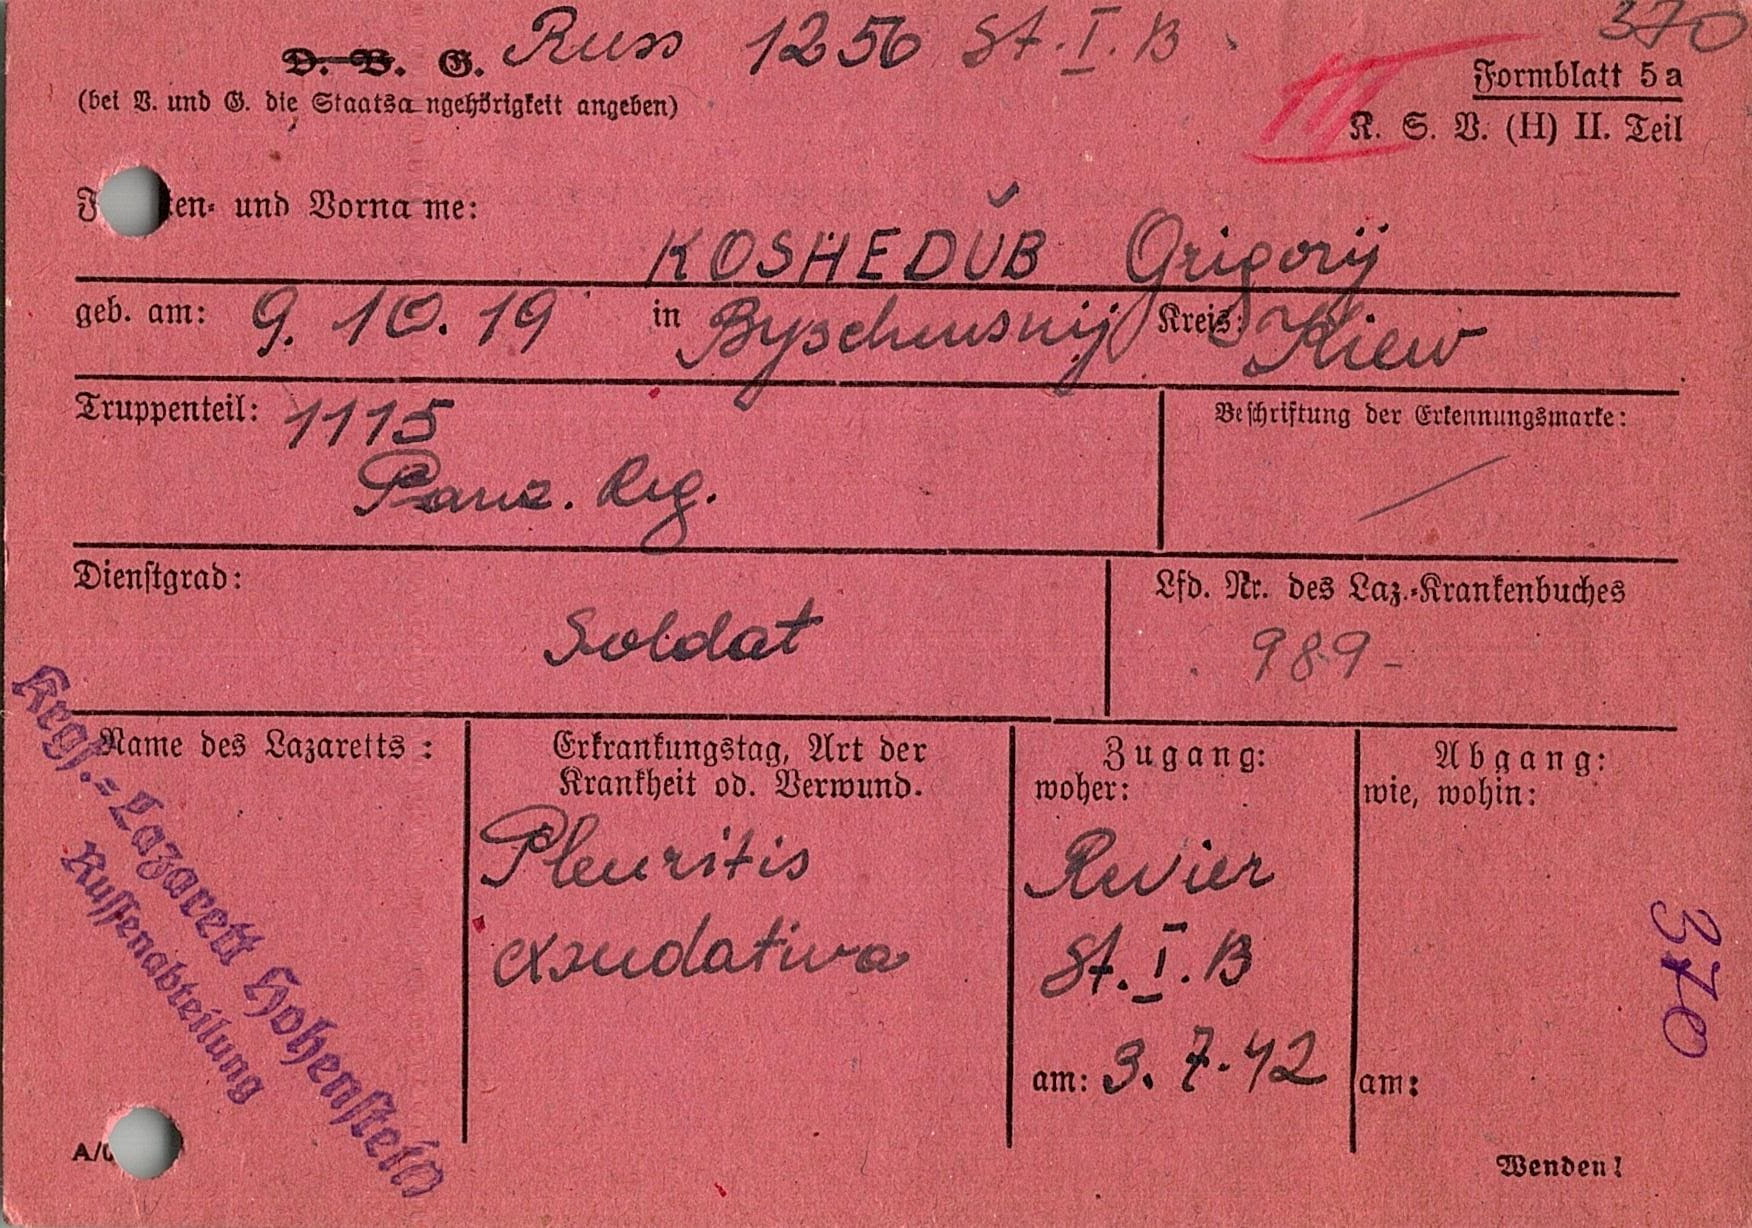 370
D. V. G. Russ 1256 St. I. B
(bei V. und G. die Staatsangehörigkeit angeben)
Formblatt 5a
III
K. S. V. (H) II. Teil
und Vorname:
KOSHEDŬB Grigorij
geb. am: 9. 10. 19 in Kreis: Kiew
Truppenteil: 1115
Panz. Reg.
Beschriftung der Erkennungsmarke:
Dienstgrad:
Soldat
Lfd. Nr. des Laz.-Krankenbuches
989-
Name des Lazaretts:
Krgf.-Lazarett Hohenstein
Russenabteilung
Erkrankungstag, Art der
Krankheit od. Verwund.
Pleuritis
exsudativa
Zugang:
woher:
Revier
St. I. B
am: 3. 7. 42
Abgang:
wie, wohin:
am:
370
Wenden!